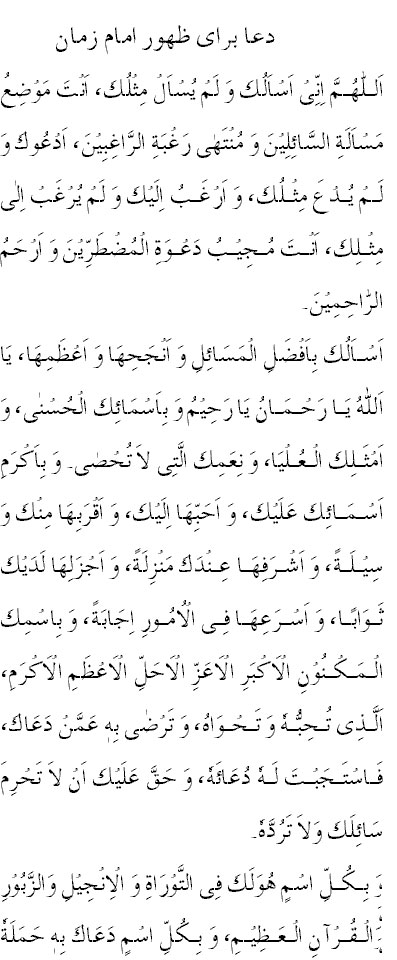 دعا برای ظهور امام زمان
اَللّٰهُمَّ اِنِّیْ اَسْاَلُكَ وَ لَمْ یُسْاَلْ مِثْلُكَ، اَنْتَ مَوْضِعُ
مَسْاَلَةِ السَّائِلِیْنَ وَ مُنْتَهٰی رَغْبَةِ الرَّاغِبِیْنَ، اَدْعُوكَ وَ
لَمْ یُدْعَ مِثْلُكَ، وَ اَرْغَبُ اِلَیْكَ وَ لَمْ یُرْغَبْ اِلٰی
مِثْلِكَ، اَنْتَ مُجِیْبُ دَعْوَةِ الْمُضْطَرِّیْنَ وَ اَرْحَمُ
الرّٰاحِمِیْنَ۔
اَسْاَلُكَ بِاَفْضَلِ الْمَسَائِلِ وَ اَنْجَحِهَا وَ اَعْظَمِهَا، یَا
اَللّٰهُ یَا رَحْمَانُ یَا رَحِیْمُ وَ بِاَسْمَائِكَ الْحُسْنٰی، وَ
اَمْثَلِكَ الْعُلْیَا، وَ نِعَمِكَ الَّتِی لاَ تُحْصٰی۔ وَ بِاَكْرَمِ
اَسْمَائِكَ عَلَیْكَ، وَ اَحَبِّهَا اِلَیْكَ، وَ اَقْرَبِهَا مِنْكَ وَ
سِیْلَةً، وَ اَشْرَفِهَا عِنْدَكَ مَنْزِلَةً، وَ اَجْزَلِهَا لَدَیْكَ
ثَوَابًا، وَ اَسْرَعِهَا فِی الْاُمُورِ اِجَابَةً، وَ بِاسْمِكَ
الْمَكْنُوْنِ الْاَكْبَرِ الْاَعَزِّ الْاَحَلِّ الْاَعْظَمِ الْاَكْرَمِ،
اَلَّذِی تُحِبُّهٗ وَ تَحْوَاهُ، وَ تَرْضٰی بِهٖ عَمَّنْ دَعَاكَ،
فَاسْتَجَبْتَ لَهٗ دُعَائَهٗ، وَ حَقَّ عَلَیْكَ اَنْ لاَ تَحْرِمَ
سَائِلَكَ وَلاَ تَرُدَّهٗ۔
وَ بِكُلِّ اسْمٍ هُوَلَكَ فِی التَّوْرَاةِ وَ الْاِنْجِیْلِ وَالزَّبُوْرِ
وَالْقُرْآنِ الْعَظِیْمِ، وَ بِكُلِّ اسْمٍ دَعَاكَ بِهٖ حَمَلَةُ